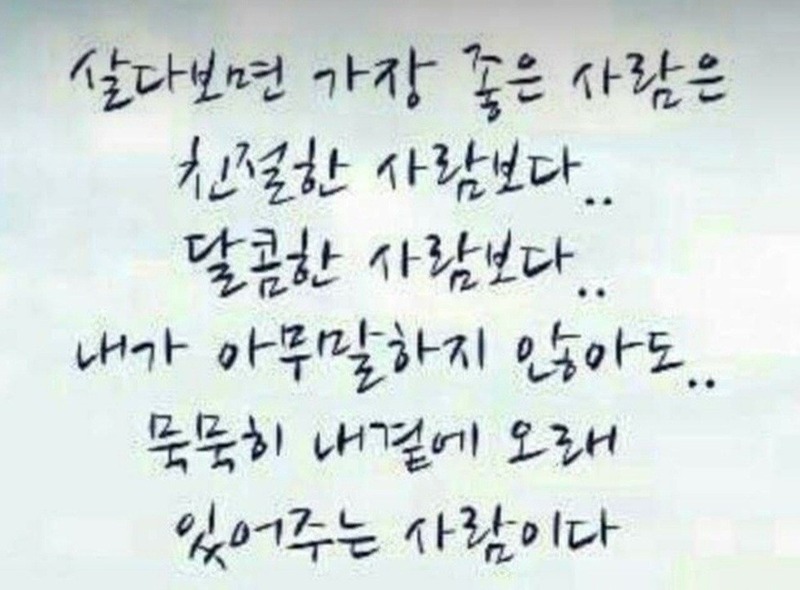 살다보면 가장 좋은 사람은
친절한 사람보다..
달콤한 사람보다..
내가 아무말하지 않아도..
묵묵히 내곁에 오래
있어주는 사람이다